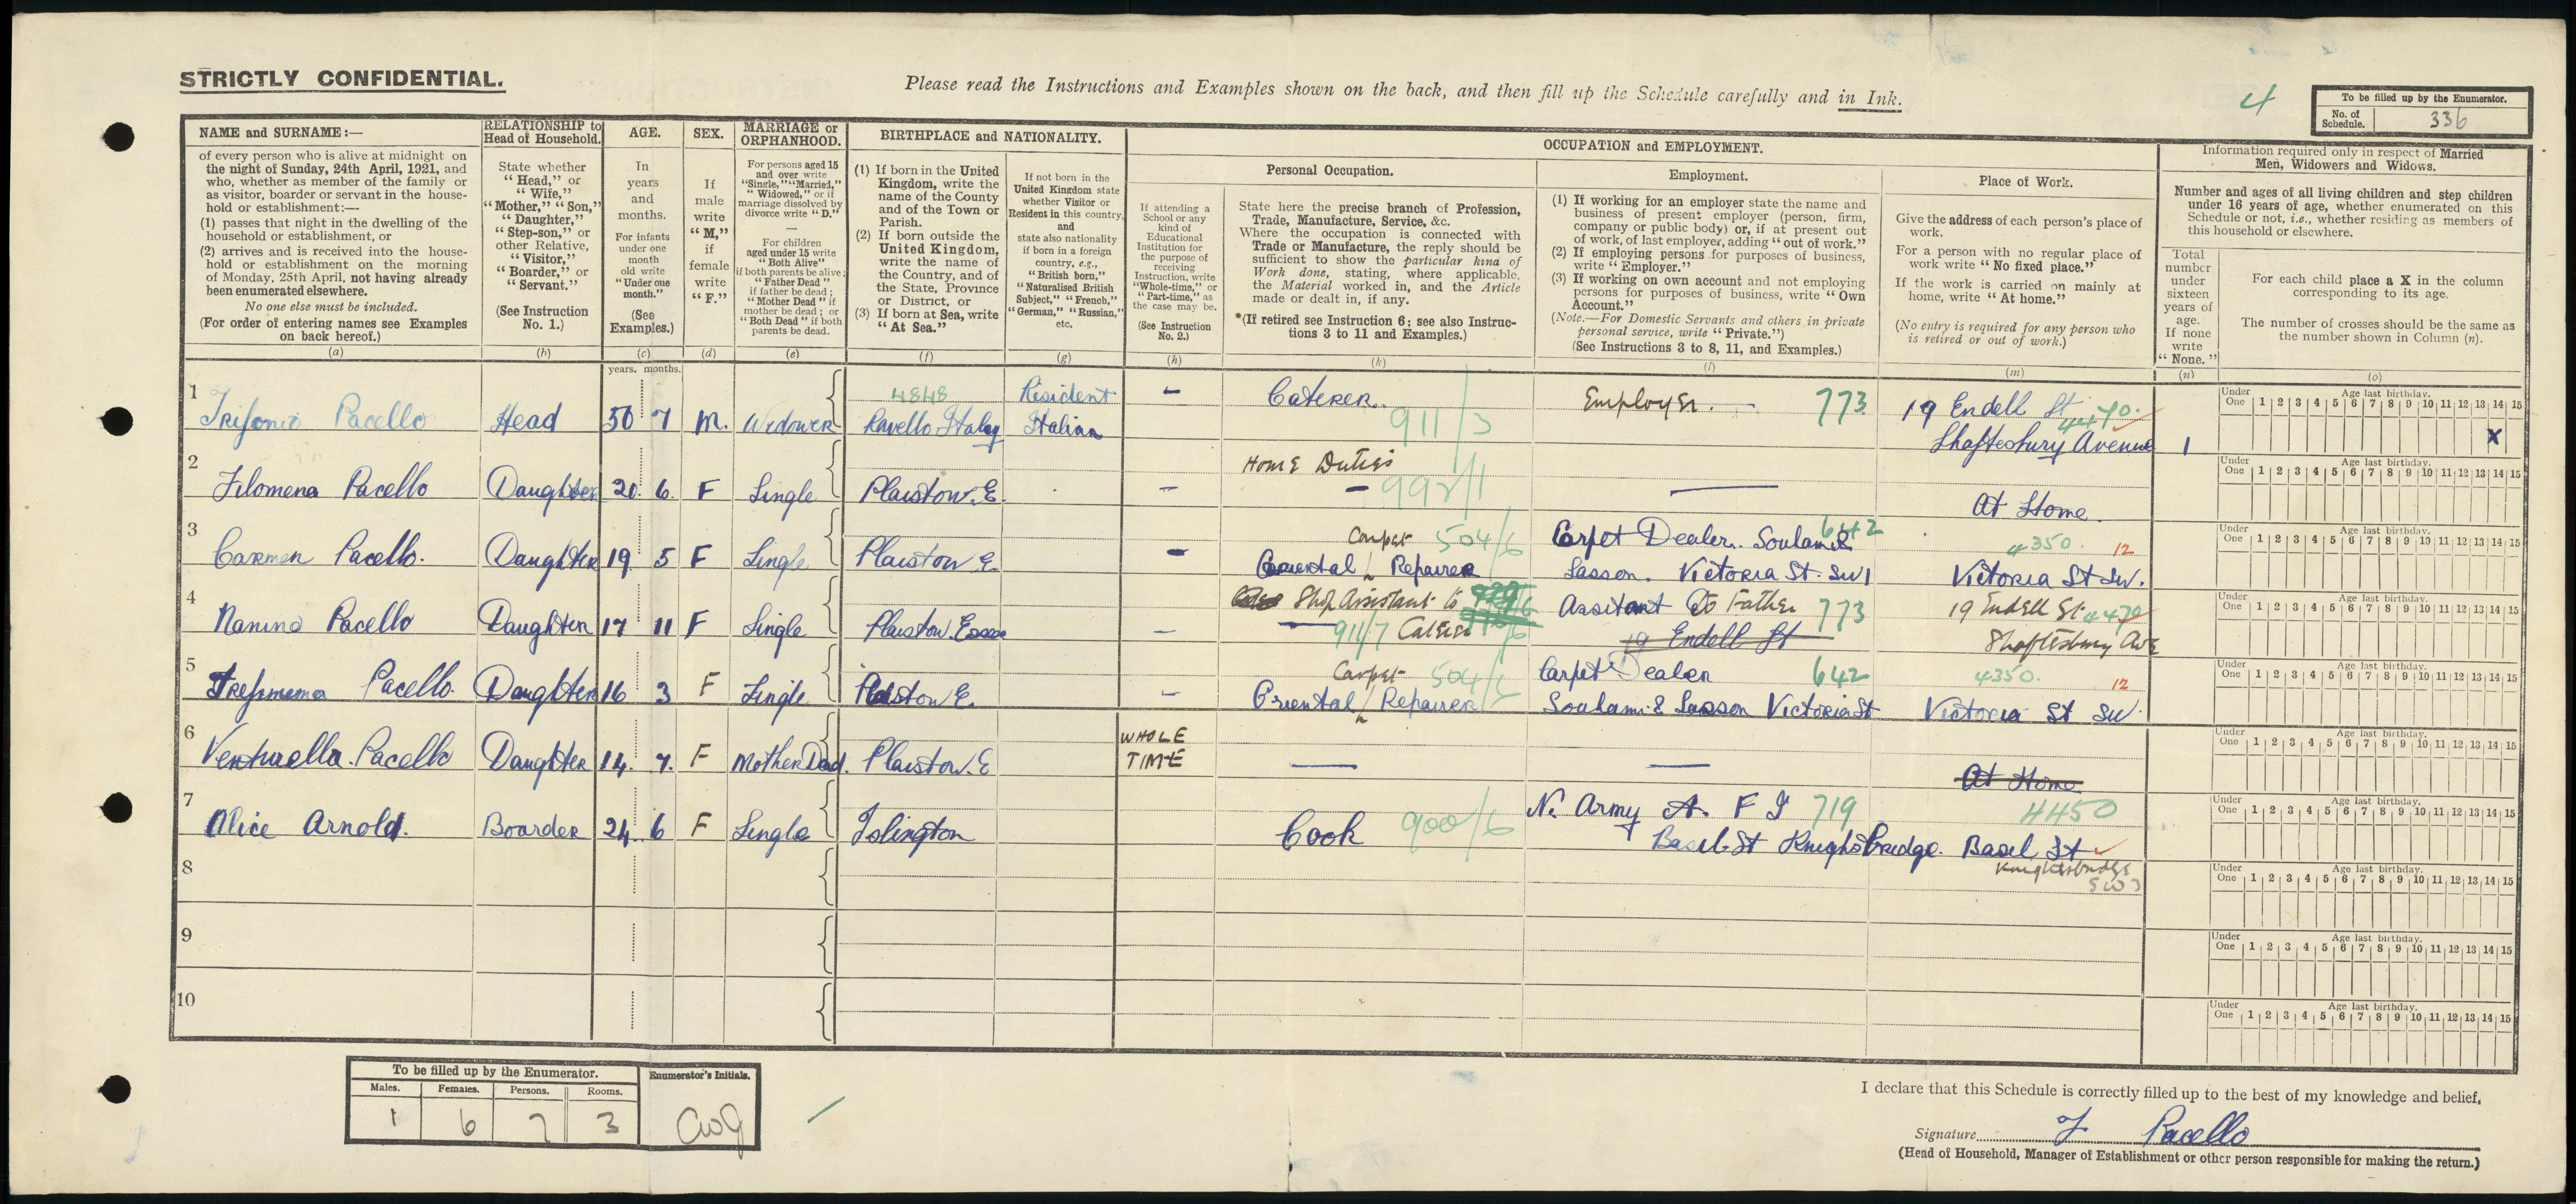 STRICTLY CONFIDENTIAL.
Please read the Instructions and Examples shown on the back, and then fill up the Schedule carefully and in Ink.
4
To be filled up by the Enumerator.
No. of Schedule. 336
NAME and SURNAME :—
of every person who is alive at midnight on
the night of Sunday, 24th April, 1921, and
who, whether as member of the family or
as visitor, boarder or servant in the house-
hold or establishment :—
(1) passes that night in the dwelling of the
household or establishment, or
(2) arrives and is received into the house-
hold or establishment on the morning
of Monday, 25th April, not having already
been enumerated elsewhere.
No one else must be included.
(For order of entering names see Examples
on back hereof.)
(a)
RELATIONSHIP to
Head of Household.
State whether
"Head," or
"Wife,"
"Mother," "Son,"
"Daughter,"
"Step-son," or
other Relative,
"Visitor,"
"Boarder," or
"Servant."
(See Instruction
No. 1.)
(b)
AGE.
In
years
and
months.
For infants
under one
month
old write
"Under one
month."
(See
Examples.)
(c)
years. months.
SEX.
If
male
write
"M,"
if
female
write
"F."
(d)
MARRIAGE or
ORPHANHOOD.
For persons aged 15
and over write
"Single," "Married,"
"Widowed," or if
marriage dissolved by
divorce write "D."
For children
aged under 15 write
"Both Alive"
if both parents be alive;
"Father Dead"
if father be dead;
"Mother Dead" if
mother be dead; or
"Both Dead" if both
parents be dead.
(e)
BIRTHPLACE and NATIONALITY.
(1) If born in the United
Kingdom, write the
name of the County
and of the Town or
Parish.
(2) If born outside the
United Kingdom,
write the name of
the Country, and of
the State, Province
or District, or
(3) If born at Sea, write
"At Sea."
(f)
If not born in the
United Kingdom state
whether Visitor or
Resident in this country,
and
state also nationality
if born in a foreign
country, e.g.,
"British born,"
"Naturalised British
Subject," "French,"
"German," "Russian,"
etc.
(g)
OCCUPATION and EMPLOYMENT.
If attending a
School or any
kind of
Educational
Institution for
the purpose of
receiving
Instruction, write
"Whole-time," or
"Part-time," as
the case may be.
(See Instruction
No. 2.)
(h)
Personal Occupation.
State here the precise branch of Profession,
Trade, Manufacture, Service, &c.
Where the occupation is connected with
Trade or Manufacture, the reply should be
sufficient to show the particular kind of
Work done, stating, where applicable,
the Material worked in, and the Article
made or dealt in, if any.
(If retired see Instruction 6; see also Instruc-
tions 3 to 11 and Examples.)
(k)
Employment.
(1) If working for an employer state the name and
business of present employer (person, firm,
company or public body) or, if at present out
of work, of last employer, adding "out of work."
(2) If employing persons for purposes of business,
write "Employer."
(3) If working on own account and not employing
persons for purposes of business, write "Own
Account."
(Note.—For Domestic Servants and others in private
personal service, write "Private.")
(See Instructions 3 to 8, 11, and Examples.)
(l)
Place of Work.
Give the address of each person's place of
work.
For a person with no regular place of
work write "No fixed place."
If the work is carried on mainly at
home, write "At home."
(No entry is required for any person who
is retired or out of work.)
(m)
Information required only in respect of Married
Men, Widowers and Widows.
Number and ages of all living children and step children
under 16 years of age, whether enumerated on this
Schedule or not, i.e., whether residing as members of
this household or elsewhere.
Total
number
under
sixteen
years of
age.
If none
write
"None."
(n)
For each child place a X in the column
corresponding to its age.
The number of crosses should be the same as
the number shown in Column (n).
(o)
Under One Age last birthday. 1 2 3 4 5 6 7 8 9 10 11 12 13 14 15
1 4848 Resident — Caterer. 911/3 Employer. — 773 19 Endell St 4470.
Pacello Head 50 7 M. Widower Ravello Italy Italian Shaftesbury Avenue 1 X
2 Home Duties
Filomena Pacello Daughter 20. 6. F Single Plaistow. E. — — 992/1 — At Home.
Under One Age last birthday. 1 2 3 4 5 6 7 8 9 10 11 12 13 14 15
3 Carpet 504/6 Carpet Dealer. 642 4350. 12
Carmen Pacello. Daughter 19. 5 F Single Plaistow E. — Oriental Repairer Sasson. Victoria St. SW1 Victoria St SW.
Under One Age last birthday. 1 2 3 4 5 6 7 8 9 10 11 12 13 14 15
4 Shop Assistant to Assitant To Father 773 19 Endell St 4470
Nanina Pacello Daughter 17 11 F Single Plaistow. Essex — 911/7 Caterer 19 Endell St Shaftesbury Ave
Under One Age last birthday. 1 2 3 4 5 6 7 8 9 10 11 12 13 14 15
5 Carpet 504/6 Carpet Dealer 642 4350. 12
Pacello. Daughter 16 3 F Single Plaistow E. — Oriental Repairer Souhami & Sasson Victoria St Victoria St SW.
Under One Age last birthday. 1 2 3 4 5 6 7 8 9 10 11 12 13 14 15
6 WHOLE
Venturella. Pacello Daughter 14. 7. F Mother Dead. Plaistow. E TIME — — At Home
Under One Age last birthday. 1 2 3 4 5 6 7 8 9 10 11 12 13 14 15
7 N. Army A. F I 719 4450
Alice Arnold. Boarder 24. 6 F Single Islington Cook 900/6 Basil St Knightsbridge. Basil St
Knightsbridge
SW3
Under One Age last birthday. 1 2 3 4 5 6 7 8 9 10 11 12 13 14 15
8
Under One Age last birthday. 1 2 3 4 5 6 7 8 9 10 11 12 13 14 15
9
Under One Age last birthday. 1 2 3 4 5 6 7 8 9 10 11 12 13 14 15
10
Under One Age last birthday. 1 2 3 4 5 6 7 8 9 10 11 12 13 14 15
Under One Age last birthday. 1 2 3 4 5 6 7 8 9 10 11 12 13 14 15
To be filled up by the Enumerator.
Males. Females. Persons. Rooms.
1 6 7 3
Enumerator's Initials.
I declare that this Schedule is correctly filled up to the best of my knowledge and belief.
Signature T Pacello
(Head of Household, Manager of Establishment or other person responsible for making the return.)